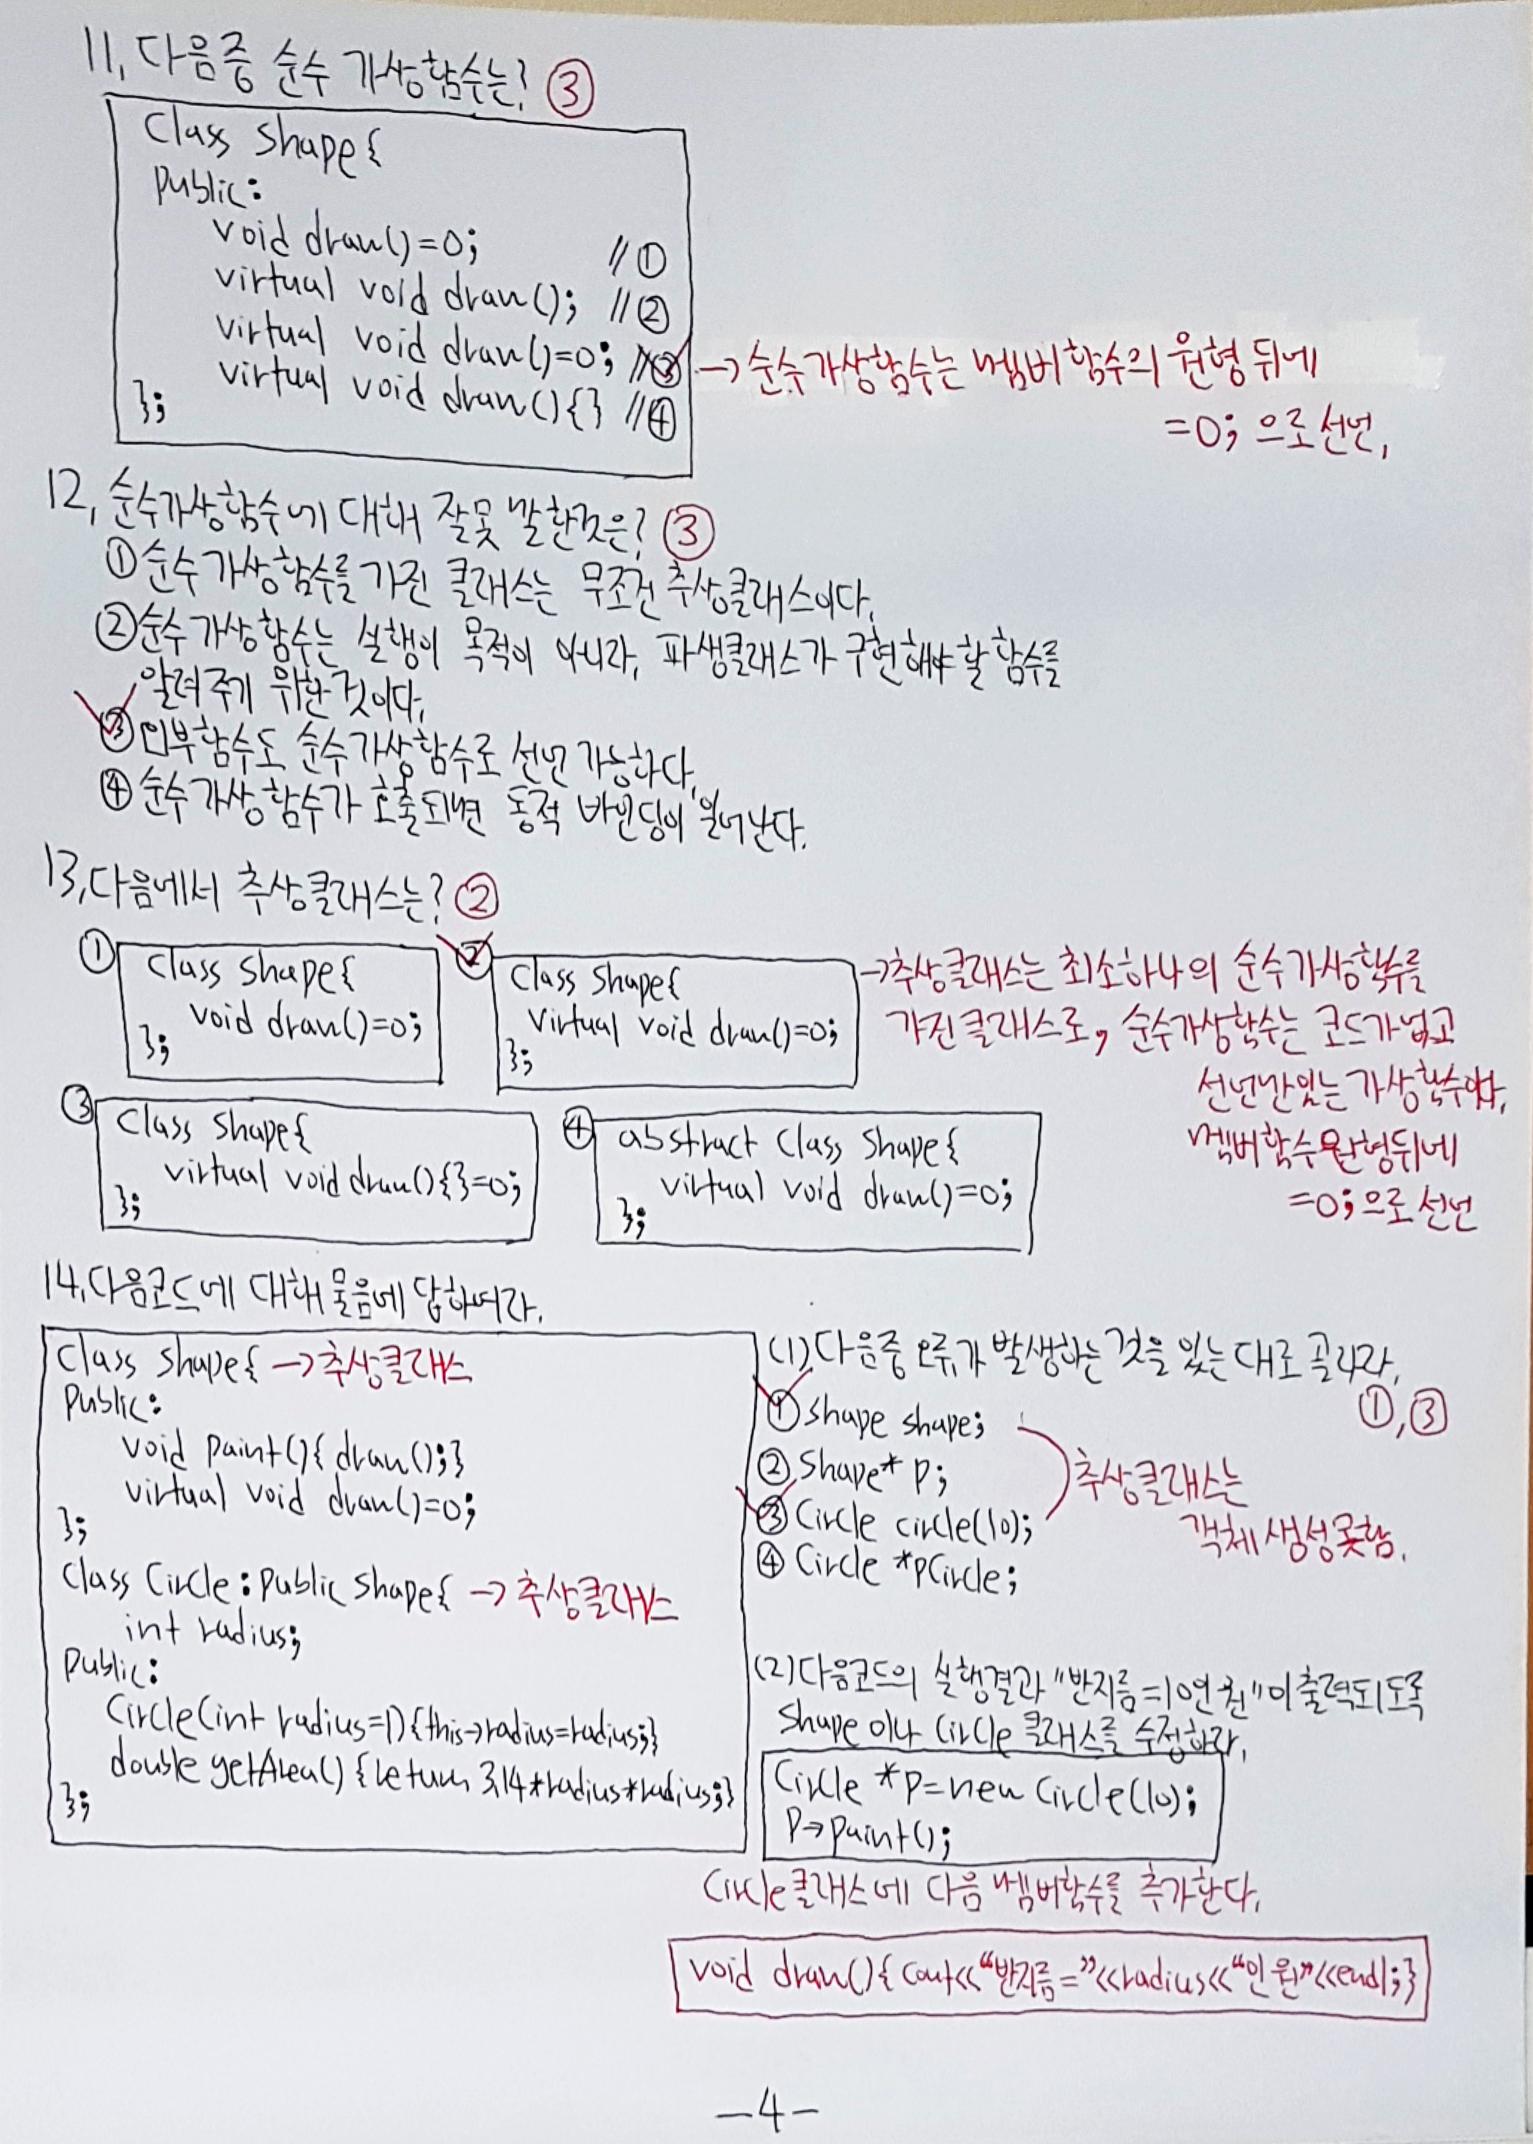 11. 다음중 순수 가상함수는? ③
Class Shape{
Public:
void draw()=0; //①
virtual void draw(); //②
virtual void draw()=0; //③ → 순수가상함수는 멤버함수의 원형 뒤에
virtual void draw(){} //④ =0; 으로 선언.
};
12. 순수가상함수에 대해 잘못 말한것은? ③
① 순수가상함수를 가진 클래스는 무조건 추상클래스이다.
② 순수가상함수는 실행이 목적이 아니라, 파생클래스가 구현해야할 함수를
알려주기 위한것이다.
③ 외부함수도 순수가상함수로 선언 가능하다.
④ 순수가상함수가 호출되면 동적 바인딩이 일어난다.
13. 다음에서 추상클래스는? ②
①
Class Shape{
void draw()=0;
};
②
Class Shape{
virtual void draw()=0;
};
→추상클래스는 최소하나의 순수가상함수를
가진클래스로, 순수가상함수는 코드가없고
선언만있는 가상함수이다.
멤버함수원형뒤에
=0;으로 선언
③
Class Shape{
virtual void draw(){}=0;
};
④
abstract Class Shape{
virtual void draw()=0;
};
14. 다음코드에 대해 물음에 답하여라.
Class Shape{ → 추상클래스
Public:
void paint(){draw();}
virtual void draw()=0;
};
Class Circle:public Shape{ → 추상클래스
int radius;
Public:
Circle(int radius=1){this→radius=radius;}
double getArea(){return 3.14*radius*radius;}
};
(1). 다음중 오류가 발생하는 것을 있는대로 골라라.
①,③
① Shape shape;
② Shape* p;
③ Circle circle(10);
④ Circle *pCircle;
추상클래스는
객체생성못함.
(2) 다음코드의 실행결과 "반지름=10인 원"이 출력되도록
Shape 이나 Circle 클래스를 수정하라.
Circle *p=new Circle(10);
P→paint();
Circle클래스에 다음 멤버함수를 추가한다.
void draw(){cout<<"반지름="<<radius<<"인 원"<<endl;}
-4-